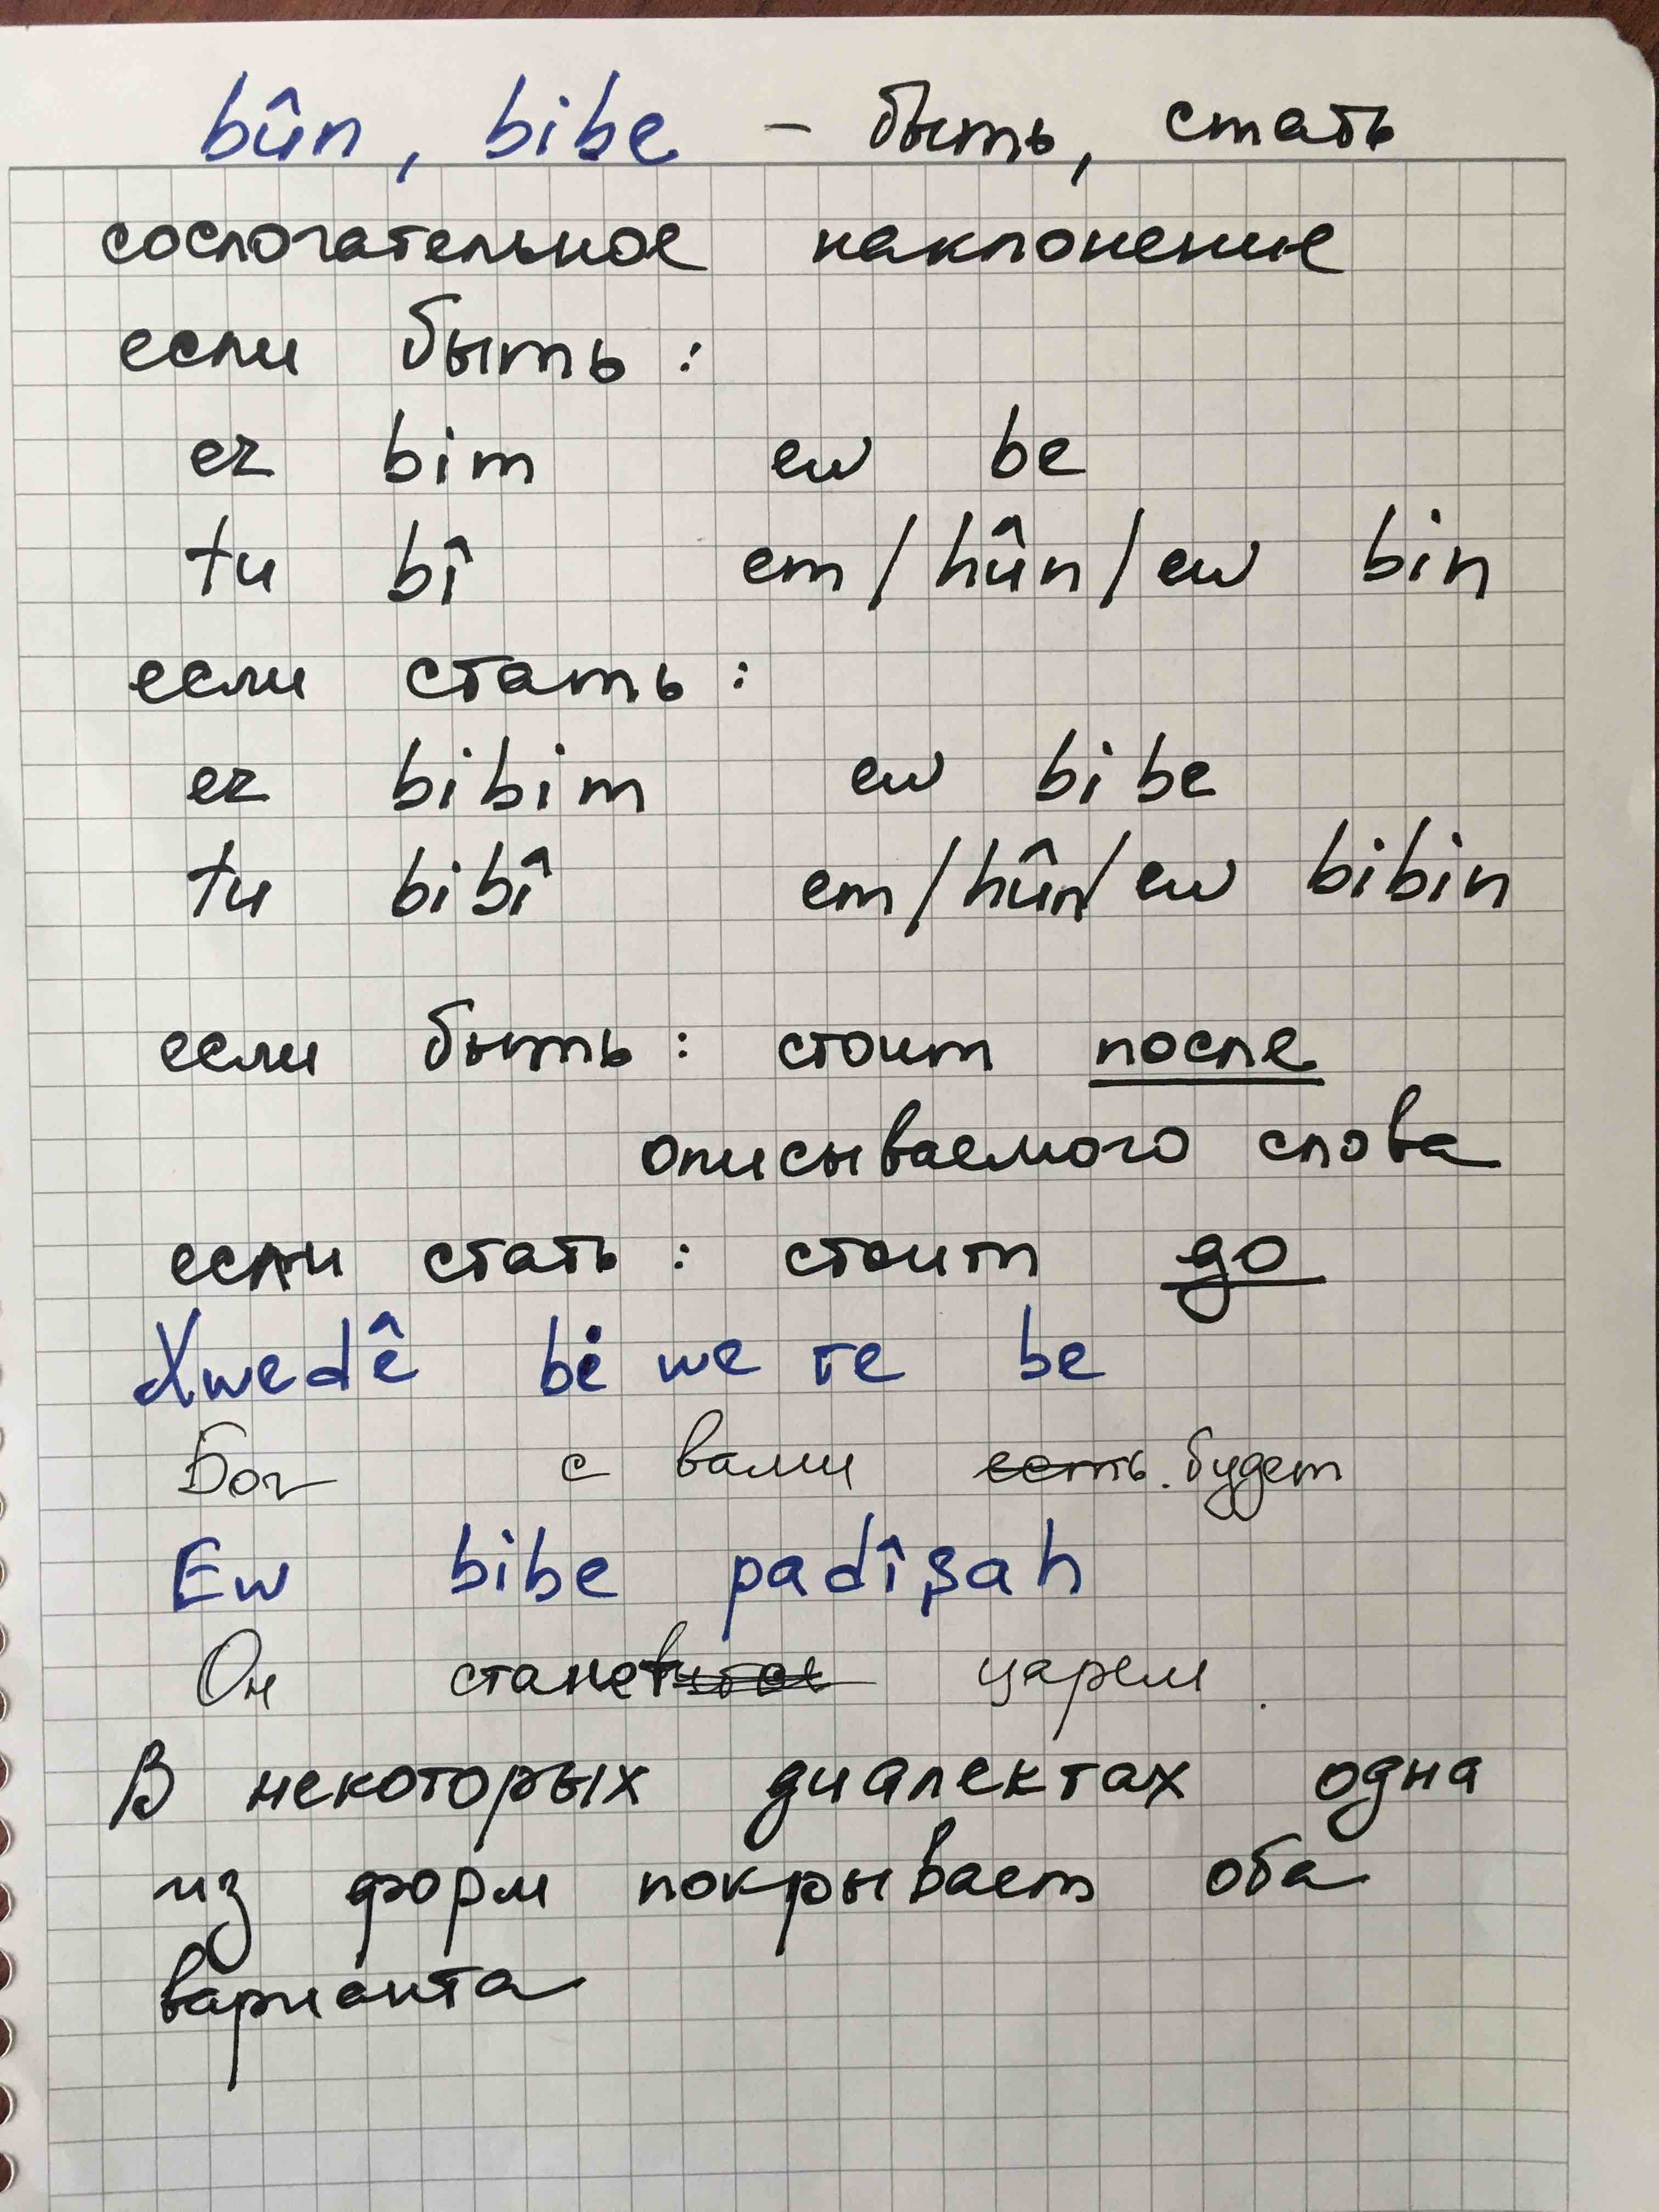 bûn, bibe – быть, стать
сослогательное наклонение
если быть:
ez bim ew be
tu bî em/hûn/ew bin
если стать:
ez bibim ew bibe
tu bibî em/hûn/ew bibin
если быть: стоит после
описываемого слова
если стать: стоит до
Xwedê bi we re be
Бог с вами есть. будет
Ew bibe padîşah
Он станет царем.
В некоторых диалектах одна
из форм покрывает оба
варианта